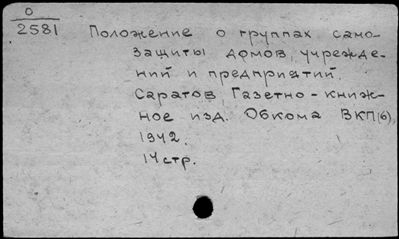 0
2581
Положение о группах само-
защиты домов, учрежде-
ний и предприятий.
Саратов, Газетно-книж-
ное изд. Обкома ВКП(б),
1942.
14 стр.